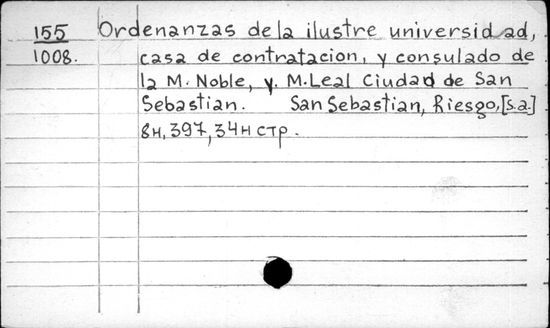 155 Ordenanzas de la ilustre universidad,
1008. casa de contratacion, y consulado de
la M. Noble, y. M. Leal Ciudad de San
Sebastian. San Sebastian, Riesgo, [s.a.]
8н, 397, 34н стр.